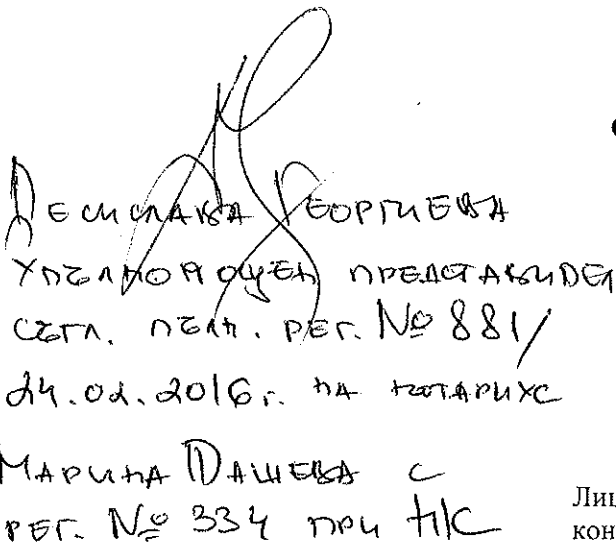 Десислава Георгиева
упълномощен представител
съгл. пълн. рег. № 881/
24.02.2016г. на нотариус
Марина Дашева с
рег. № 334 при НК
Лиц
кон